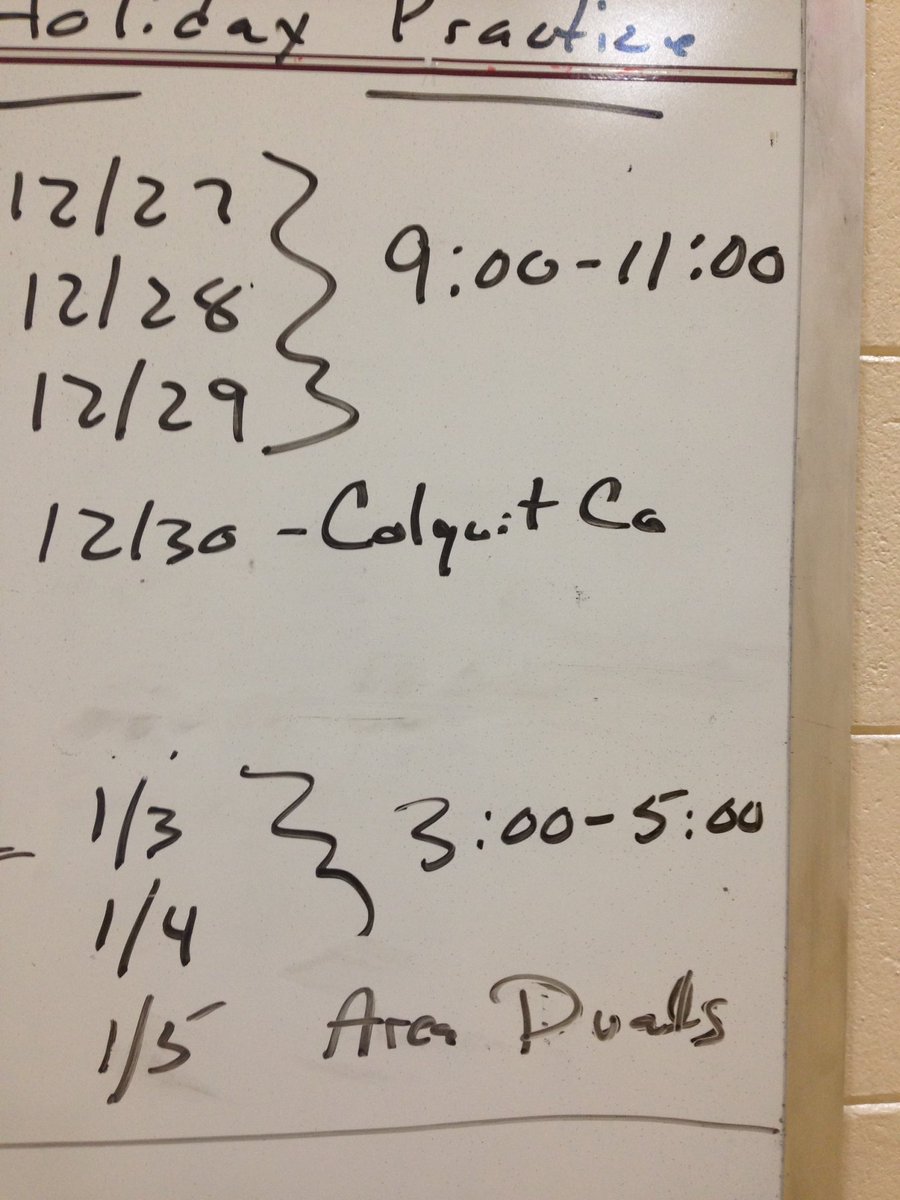 Holiday Practize
12/27
12/28
12/29
9:00-11:00
12/30 - Colquit Co
1/3
1/4
3:00-5:00
1/5 Area Dualls